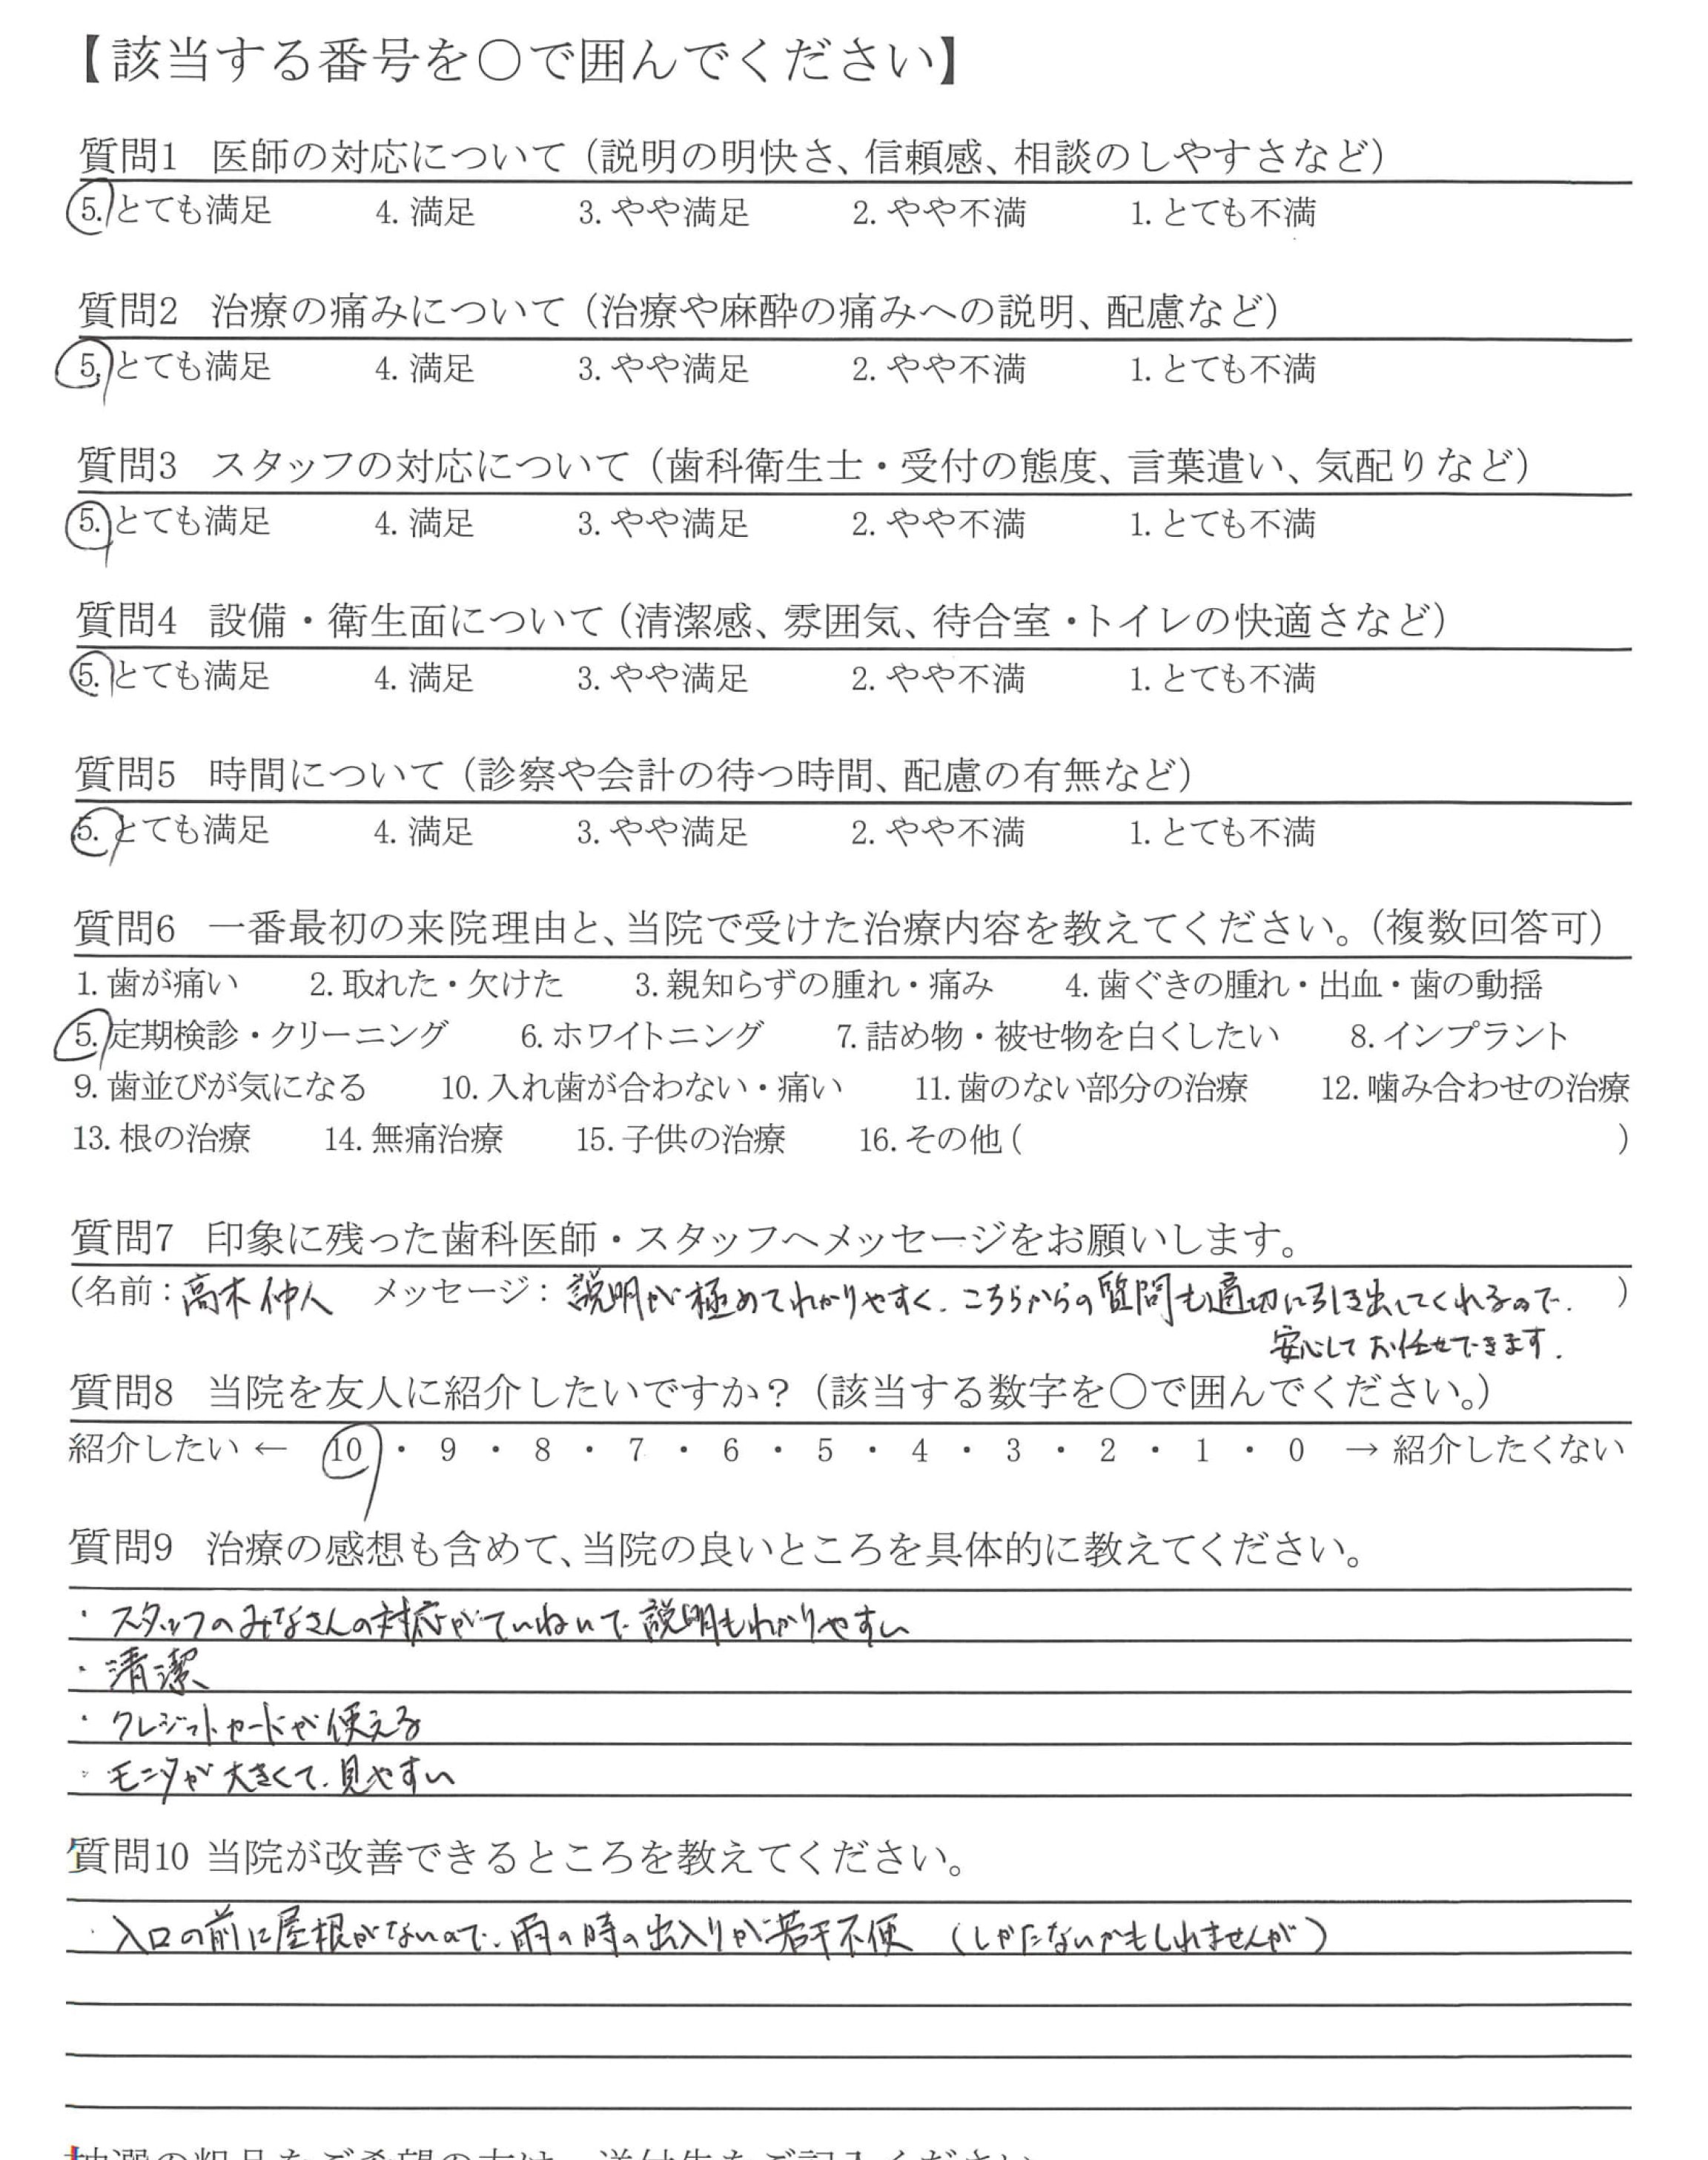 【該当する番号を〇で囲んでください】
質問1 医師の対応について（説明の明快さ、信頼感、相談のしやすさなど）
5. とても満足 4. 満足 3. やや満足 2. やや不満 1. とても不満
質問2 治療の痛みについて（治療や麻酔の痛みへの説明、配慮など）
5. とても満足 4. 満足 3. やや満足 2. やや不満 1. とても不満
質問3 スタッフの対応について（歯科衛生士・受付の態度、言葉遣い、気配りなど）
5. とても満足 4. 満足 3. やや満足 2. やや不満 1. とても不満
質問4 設備・衛生面について（清潔感、雰囲気、待合室・トイレの快適さなど）
5. とても満足 4. 満足 3. やや満足 2. やや不満 1. とても不満
質問5 時間について（診察や会計の待つ時間、配慮の有無など）
5. とても満足 4. 満足 3. やや満足 2. やや不満 1. とても不満
質問6 一番最初の来院理由と、当院で受けた治療内容を教えてください。（複数回答可）
1. 歯が痛い 2. 取れた・欠けた 3. 親知らずの腫れ・痛み 4. 歯ぐきの腫れ・出血・歯の動揺
5. 定期検診・クリーニング 6. ホワイトニング 7. 詰め物・被せ物を白くしたい 8. インプラント
9. 歯並びが気になる 10. 入れ歯が合わない・痛い 11. 歯のない部分の治療 12. 噛み合わせの治療
13. 根の治療 14. 無痛治療 15. 子供の治療 16. その他 ( )
質問7 印象に残った歯科医師・スタッフへメッセージをお願いします。
（名前：高木仲人 メッセージ：説明が極めてわかりやすく、こちらからの質問も適切に引き出してくれるので、）
安心してお任せできます.
質問8 当院を友人に紹介したいですか？（該当する数字を〇で囲んでください。）
紹介したい ← 10 ・ 9 ・ 8 ・ 7 ・ 6 ・ 5 ・ 4 ・ 3 ・ 2 ・ 1 ・ 0 → 紹介したくない
質問9 治療の感想も含めて、当院の良いところを具体的に教えてください。
・スタッフのみなさんの対応がていねいで、説明もわかりやすい
・清潔
・クレジットカードが使える
・モニタが大きくて、見やすい
質問10 当院が改善できるところを教えてください。
・入口の前に屋根がないので、雨の時の出入りが若干不便 （しかたないかもしれませんが）